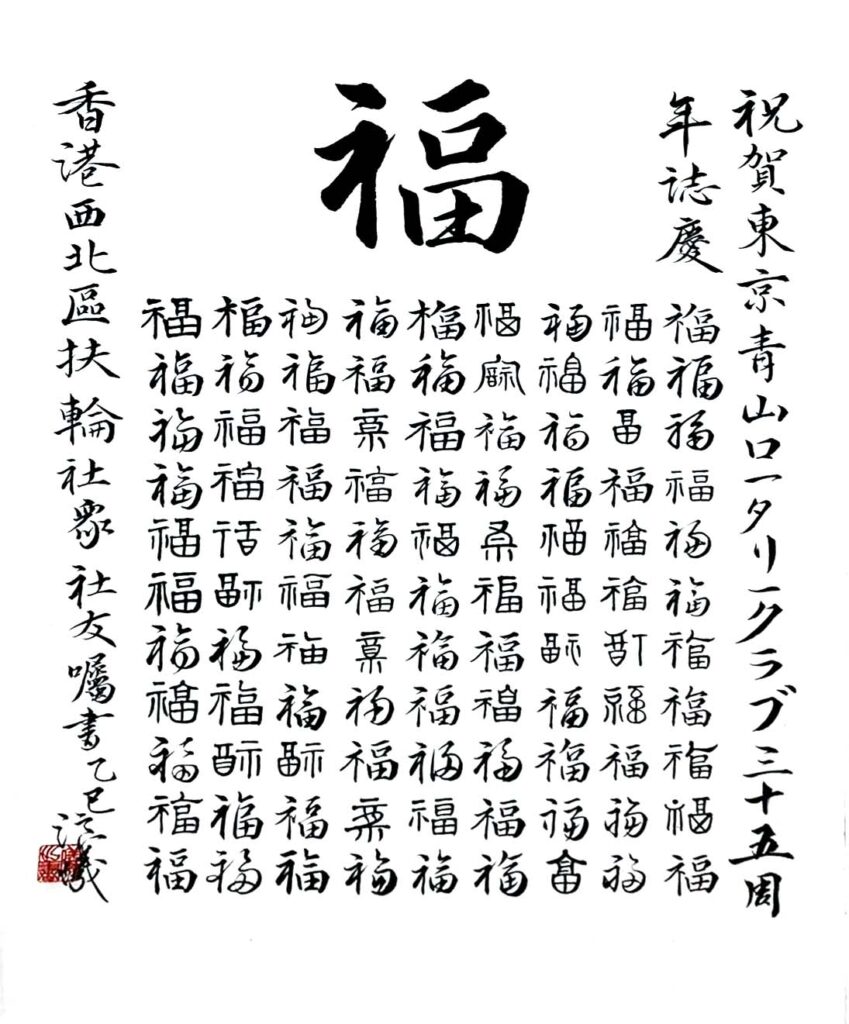 祝賀東京青山ロータリークラブ三十五周
年誌慶
福
福福福福福福福福福福福
福福福福福福福福福福福
福福福福福福福福福福福
福福福福福福福福福福福
福福福福福福福福福福福
福福福福福福福福福福福
福福福福福福福福福福福
福福福福福福福福福福福
福福福福福福福福福福福
香港西北區扶輪社眾社友囑書乙巳